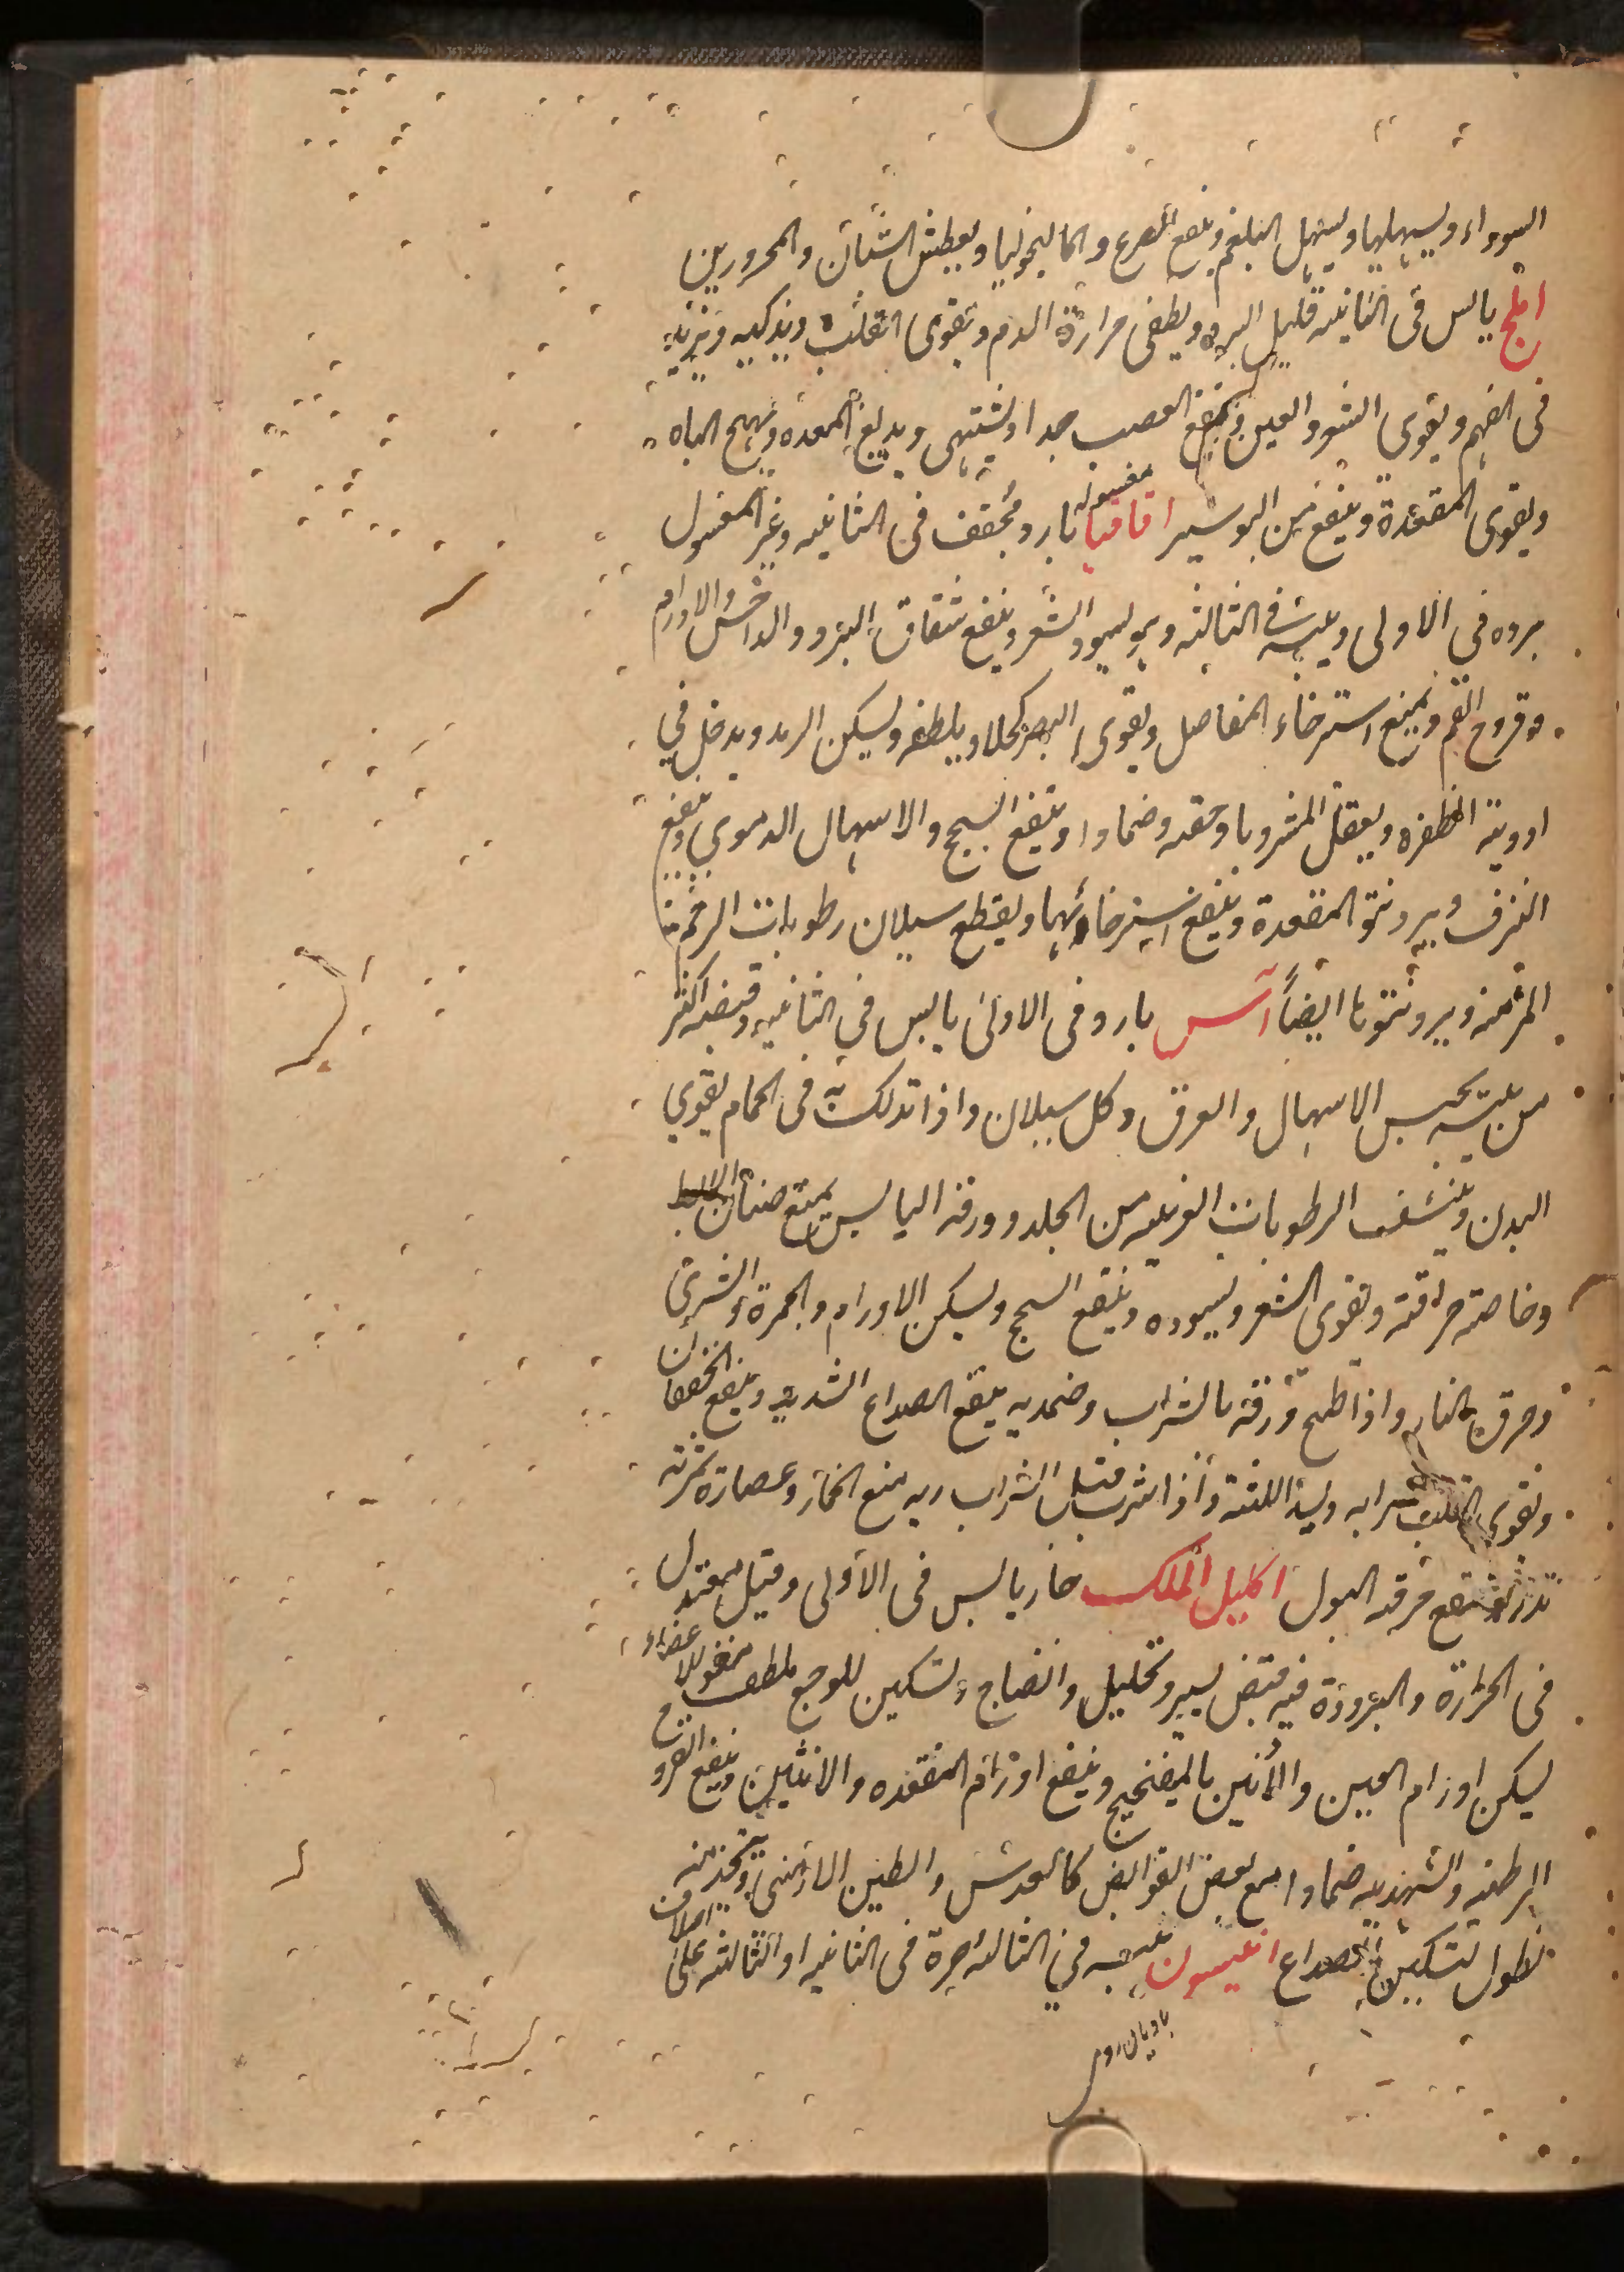 السوداء ويسهلها ويسهل البلغم وينفع الصرع والماليخوليا ويعطش الشبان والمحرورين
املج يابس في الثانيه قليل البرد ويطفى حرارة الدم ويقوى القلب ويذكيه ويزيد
في الفهم ويقوى الشعر والعين وينفع العصب جدا ويشتهى ويدبغ المعده ويهيج الباه
ويقوى المقعدة وينفع من البوسير اقاقيا مغسوله بارد مجفف في الثانيه وغير المغسول
برده في الاولى ويبسه في الثالثه ويسود الشعر وينفع شقاق البرد والداحس والاورام
وقروح الفم ويمنع استرخاء المفاصل ويقوى البصر كحلا ويلطفه ويسكن الرمد ويدخل في
ادوية الظفره ويعقل المشروبا وحقنه وضمادا وينفع السحج والاسهال الدموي وينفع
النزف ويرد نتو المقعدة وينفع استرخائها ويقطع سيلان رطوبات الرحم
المزمنه ويرد نتوها ايضاً آس بارد في الاولى يابس في الثانيه وقبضه اكثر
من يبسه يحبس الاسهال والعرق وكل سيلان واذا تدلك به في الحمام يقوي
البدن وينشف الرطوبات الغريبه من الجلد وورقه اليابس يمنع صنان الابط
وخاصته حراقته ويقوى الشعر ويسوده وينفع السحج ويسكن الاورام والحمرة والشرى
وحرق النار واذا طبخ ورقه بالشراب وضمد به ينفع الصداع الشديد وينفع الخفقان
ويقوى القلب شرابه وليشد اللثته واذا شرب قبل الشراب ربه منع الخمار وعصارة ثمرته
تدر وتنفع حرقه البول اكليل الملك حار يابس في الاولى وقيل معتدل
في الحرارة والبرودة فيه قبض يسير وتحليل وانضاج وتسكين للوجع ملطف مقو للاعضاء
يسكن اورام العين والاذنين بالميفختج وينفع اورام المقعده والانثيين وينفع القروح
الرطبه والشهديه ضمادا مع بعض القوابض كالعدس والطين الارمني ويتخذ منه
نطول لتسكين الصداع انيسون يبسه في الثالثه حرة في الثانيه او الثالثه على
باديان رومى